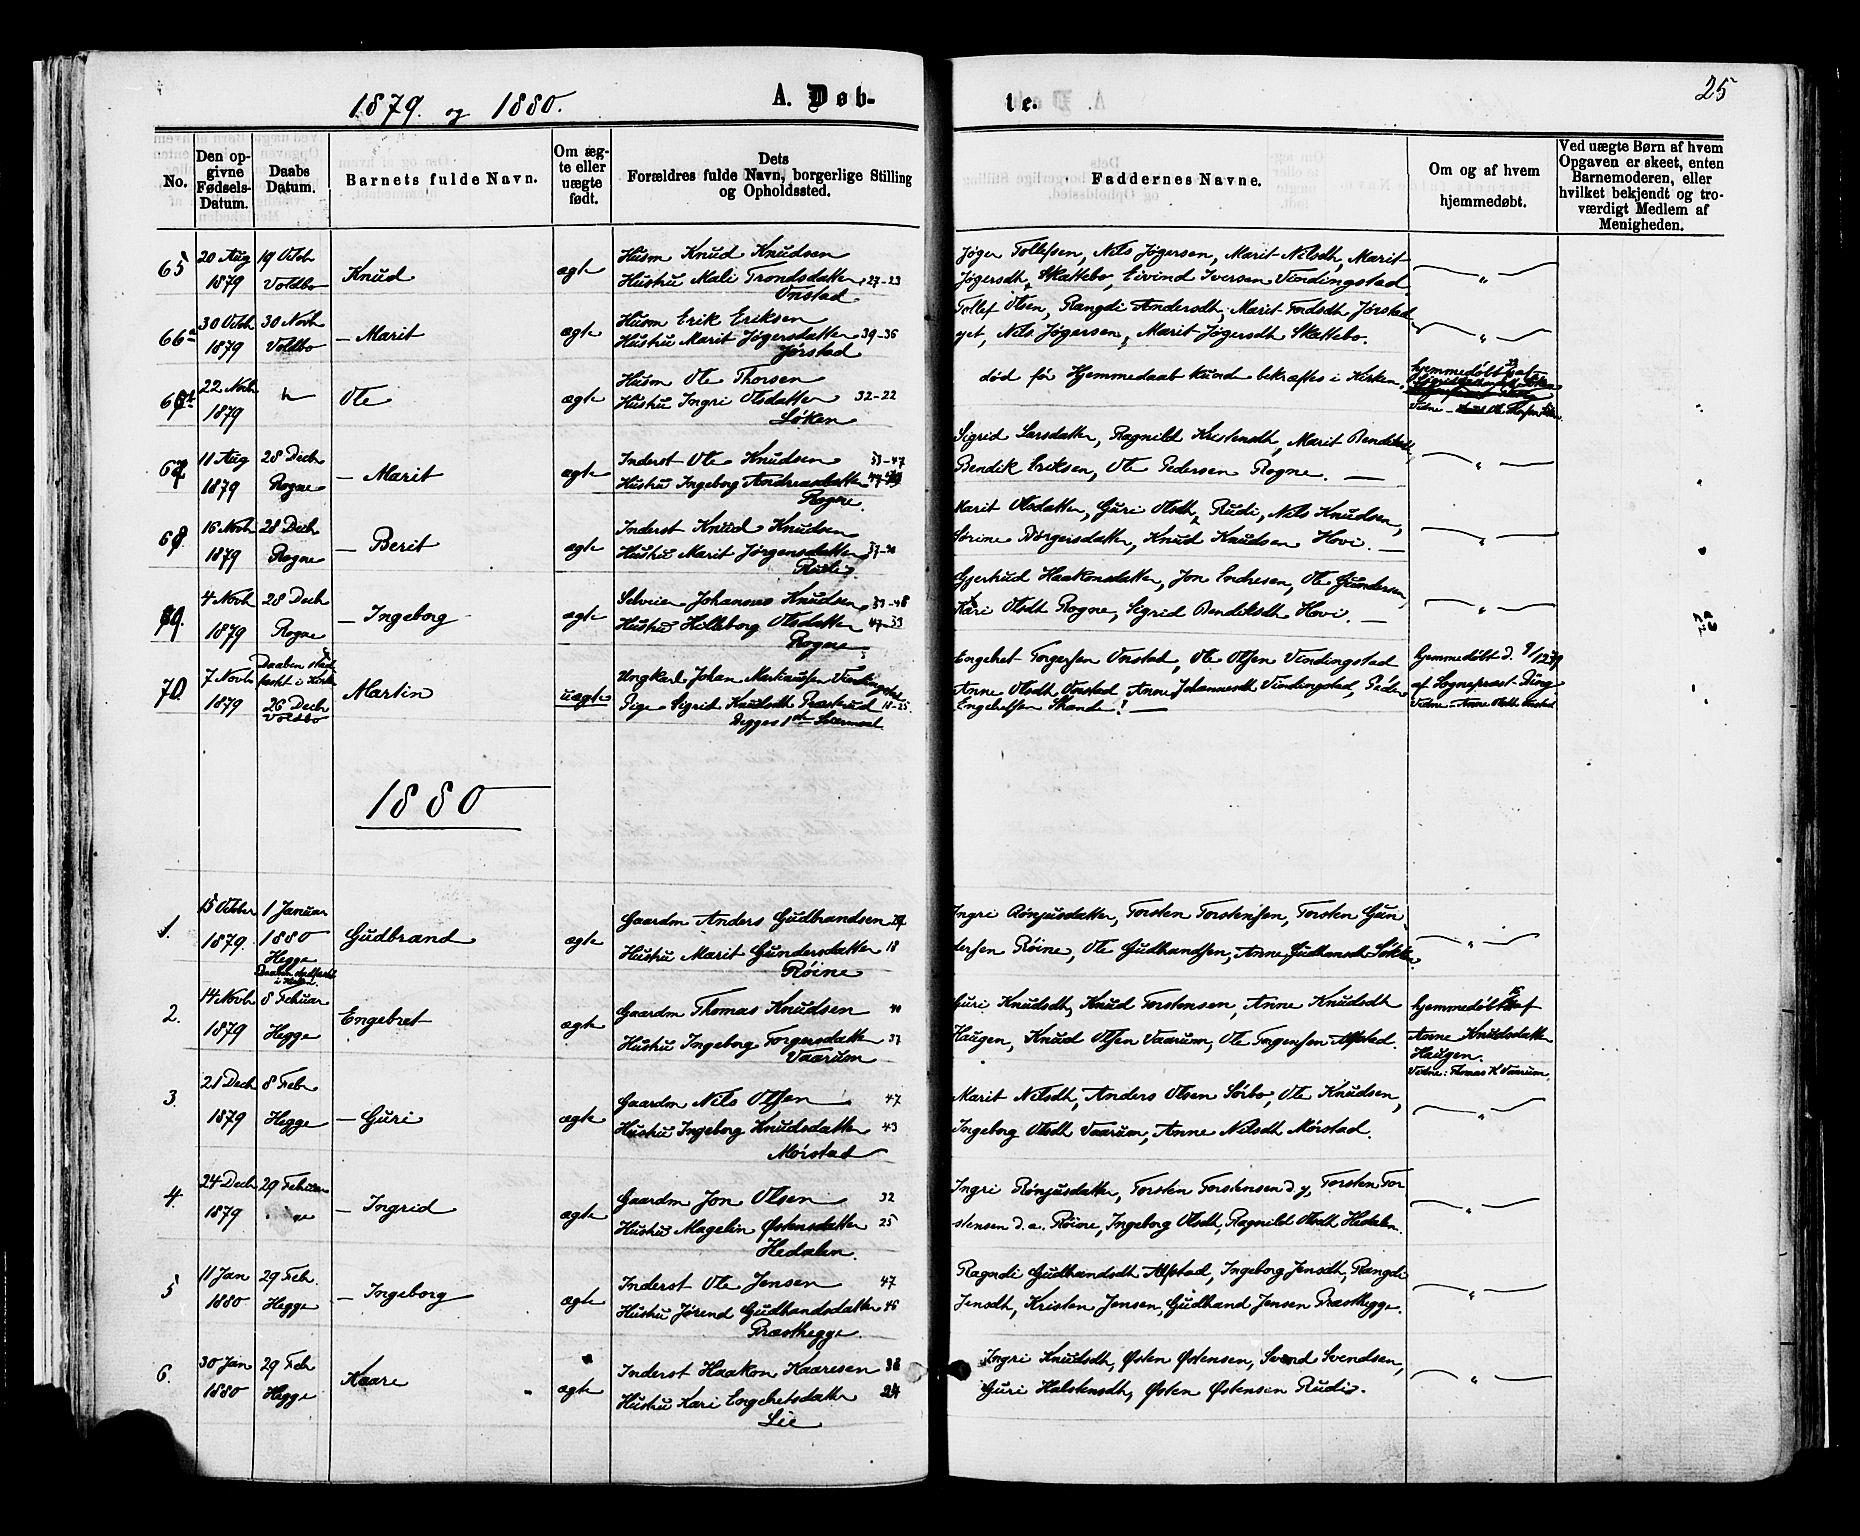 1879. og 1880.
A. Døb-
te.
25
No.
Den op-
givne
Fødsels-
Datum.
Daabs
Datum.
Barnets fulde Navn.
Om æg-
te eller
uægte
født.
Dets
Forældres fulde Navn, borgerlige Stilling
og Opholdssted.
Faddernes Navne.
Om og af hvem
hjemmedøbt.
Ved uægte Børn af hvem
Opgaven er skeet, enten
Barnemoderen, eller
hvilket bekjendt og tro-
værdigt Medlem af
Menigheden.
65
20 Aug
1879
19 Octob
Voldbo
Knud
ægte
Husm Knud Knudsen
Hustru Mali Trondsdatter 27-23
Onstad
Jøger Tollefsen, Nils Jøgersen, Marit Nilsdh, Marit
Jøgersdh, Skattebo, Eivind Iversen Vindingstad
66a
30 Octob
1879
30 Novb
Voldbo
Marit
ægte
Husm Erik Eriksen
Hustru Marit Jøgersdatter 39-36
Jørstad
Tollef Olsen, Rangdi Andersdh, Marit Jørstad
eyet, Nils Jøgersen, Marit Jøgersdh Skattebo.
22 Novb
1879
Ole
ægte
Husm Ole Thorsen
Hustru Ingri Olsdatter 32-22
Løken
død før Hjemmedaab kunde bekræftes i Kirken.
hjemmedøbt
Vidne
67
11 Aug
1879
28 Decb
Rogne
Marit
ægte
Inderst Ole Knudsen 53-47
Hustru Ingeborg Andreasdatter
Rogne
Sigrid Larsdatter, Ragnild Kristensdh, Marit Bendiksdh,
Bendik Eriksen, Ole Pedersen Rogne.
68
16 Novb
1879
28 Decb
Rogne
Berit
ægte
Inderst Knud Knudsen
Hustru Marit Jørgensdatter
Rudi
Marit Olsdatter, Guri Olsdh Rudi, Nils Knudsen,
Børgersdatter, Knud Knudsen Hovi.
69.
4 Novb
1879
28 Decb
Rogne
Ingeborg
ægte
Selveier Johannes Knudsen 53-48
Hustru Hilleborg Olsdatter 47-39
Rogne
Gjertrud Haakonsdatter, Jon Endresen, Ole Gundersen,
Kari Olsdh Rogne, Sigrid Bendiksdh Hovi.
70.
7 Novb
1879
Daaben stad
fæstet i Kirken
26 Decb
Voldbo
Martin
uægte
Ungkarl Johan Mathiassen Vindingstad
Pige Sigrid Knudsdh Præstrud 18-25
Begges 1ste Leiermaal
Engebret Torgersen Onstad, Ole Olsen Vindingstad
Anne Olsdh Onstad, Anne Johannesdh Vindingstad, Peder
Engebretsen Strande!
hjemmedøbt d. 9/12 79
af Sognepræst Ding
Vidne - Anne Olsdh Onstad
1880
1.
15 October
1879.
1 Januar
1880
Hegge
Gudbrand
ægte
Gaardm Anders Gudbrandsen 29
Hustru Marit Gundersdatter 18
Røine
Ingri Rønjusdatter, Torsten Torstensen, Torsten Gun-
dersen Røine, Ole Gudbrandsen, Anne Gudbransdh Løkke.
2.
14 Novb
1879
Daaben stadfæstet
i Kirken.
8 Februar
Hegge
Engebret
ægte
Gaardm Thomas Knudsen 40
Hustru Ingeborg Torgersdatter 37
Vaarum
Guri Knudsdh, Knud Torstensen, Anne Knudsdh
Haugen, Knud Olsen Vaarum, Ole Torgersen Alfstad.
hjemmedøbt af
Anne Knudsdatter
Haugen.
Vidne: Thomas K. Vaarum.
3.
21 Decb
1879
8 Feb
Hegge
Guri
ægte
Gaardm Nils Olsen 47
Hustru Ingeborg Knudsdatter 43
Mørstad
Marit Nilsdh, Anders Olsen Sørbo, Ole Knudsen,
Ingeborg Olsdh Vaarum, Anne Nilsdh Mørstad.
4.
24 Decb
1879
29 Februar
Ingrid
ægte
Gaardm Jon Olsen 32
Hustru Magelin Østensdatter 25
Hedalen.
Ingri Rønjusdatter, Torsten Torstensen d. y, Torsten Tor
stensen d. æ. Røine, Ingeborg Olsdh, Ragnild Olsdh Hedalen.
5
11 Jan
1880
29 Feb.
Hegge
Ingeborg
ægte
Inderst Ole Jensen 47
Hustru Jørend Gudbrandsdatter 46
Præsthegge.
Ragndi Gudbrandsdh Alfstad, Ingeborg Jensdh, Rangdi
Jensdh, Kristen Jensen, Gudbrand Jensen Præsthegge.
6.
30 Jan
1880
29 Feb
Hegge
Kaare
ægte
Inderst Haakon Kaaresen 38
Hustru Kari Engebretsdatter 24
Lie
Ingri Knudsdh, Østen Østensen, Svend Svendsen,
Guri Halstensdh, Østen Østensen Rudi.